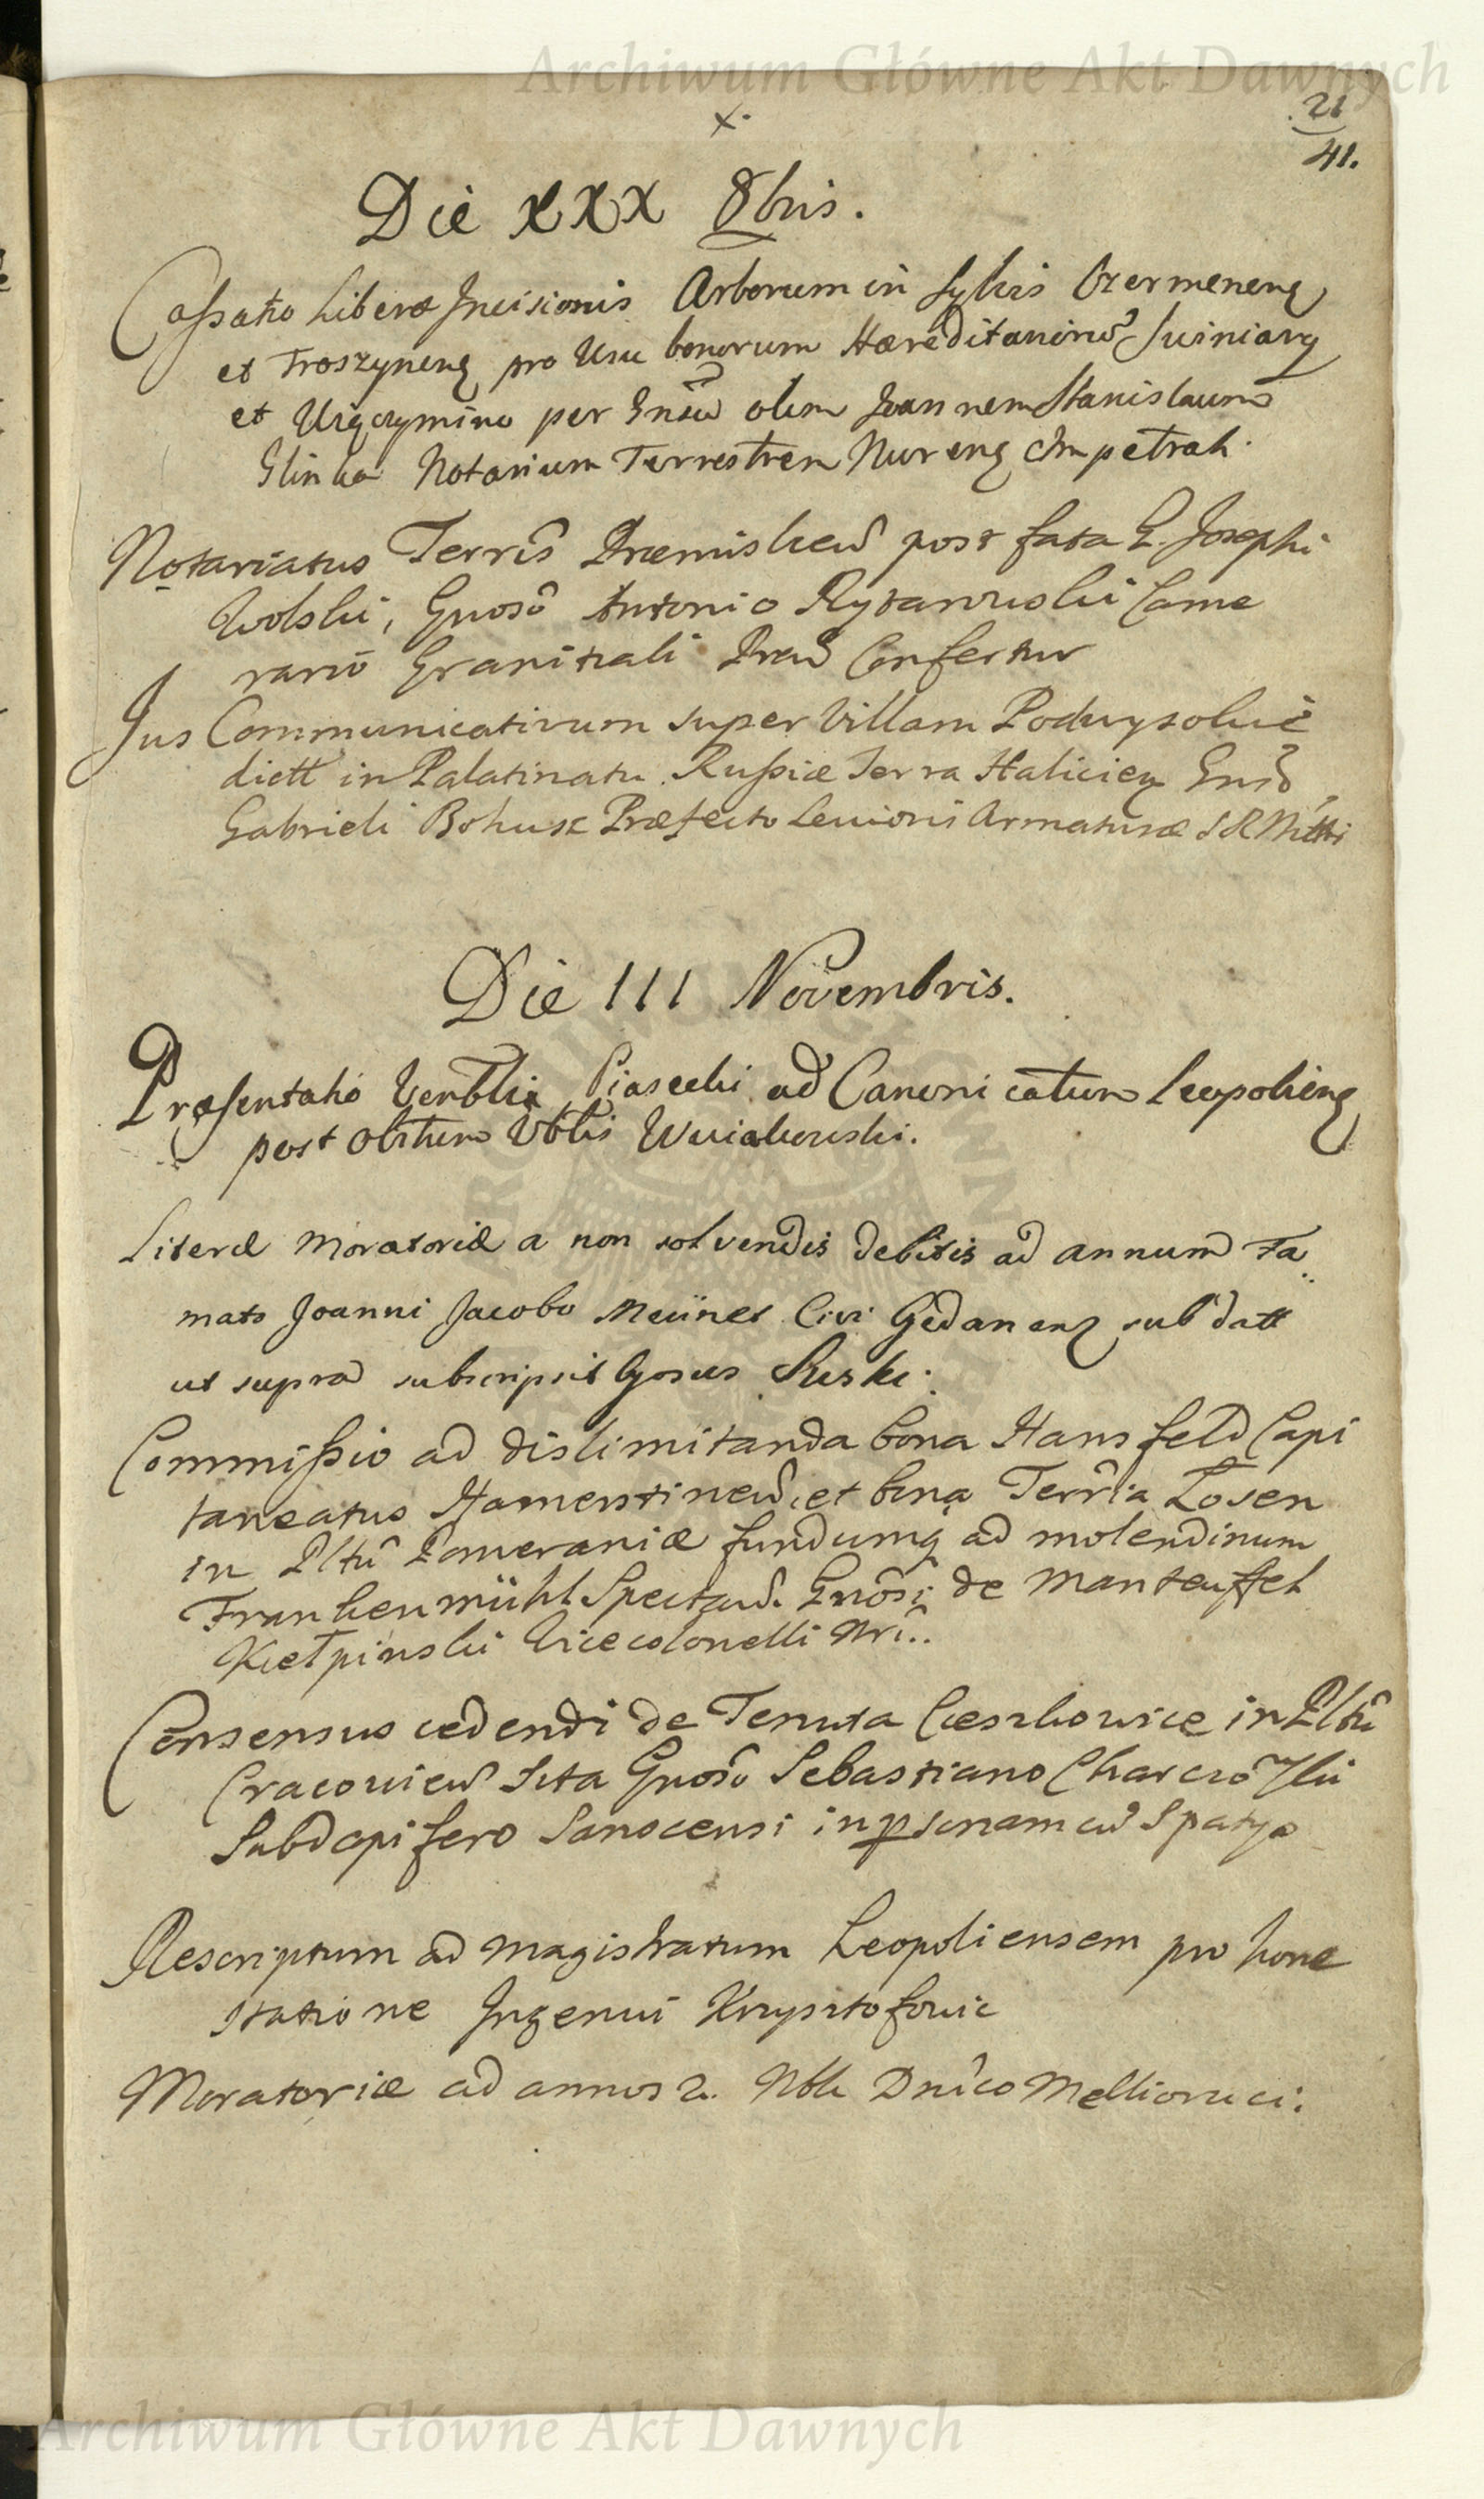 Archiwum Główne Akt Dawnych
x.
21
41.
Die XXX 8bris.
Cassatio Liberæ Incisionis Arborum in Sylvis Czermenens
et Troszynens pro Usu bonorum Hæreditariorum
et per Gnsu olim Joannem Stanislaum
Glinka Notarium Terrestrem Nurens Impetrati
Notariatus Terris Præmislien post fata G. Josephi
Wolski, Gnoso Antonio Rytarowski Came
rario Granitiali Præd Confertur
Jus Communicativum super Villam Podwysokie
dictt in Palatinatu Russiæ Terra Haliciens Gnso
Gabrieli Bohusz Præfecto Levioris Armaturæ S R Mtti
Die III Novembris.
Præsentatio Venblis Piasecki ad Canonicatum Leopoliens
post obitum Vblis Wuiakowski.
Literæ Moratoriæ a non solvendis debitis ad annum Fa
mato Joanni Jacobo Meünel Civi Gedanens sub datt
ut supra subscripsit Gosus Suski.
Commissio ad dislimitanda bona Hansfeld Capi
taneatus Hamerstinen, et bona Terria Losen
in Pltu Pomeraniæ fundumq ad molendinum
Frankenmühl Spectand. Gnosi de Manteuffel
Kiełpinski Vicecolonelli Nri..
Consensus cedendi de Tenuta Cieszkowice in Pltu
Cracovien Sita Gnoso Sebastiano
Subdapifero Sanocensi in psonam cu Spatyo
Rescriptum ad Magistratum Leopoliensem pro hone
statione Ingenui Krzysztofowic
Moratoriæ ad annos 2. Nbli Dnico Mellioruci.
Archiwum Główne Akt Dawnych